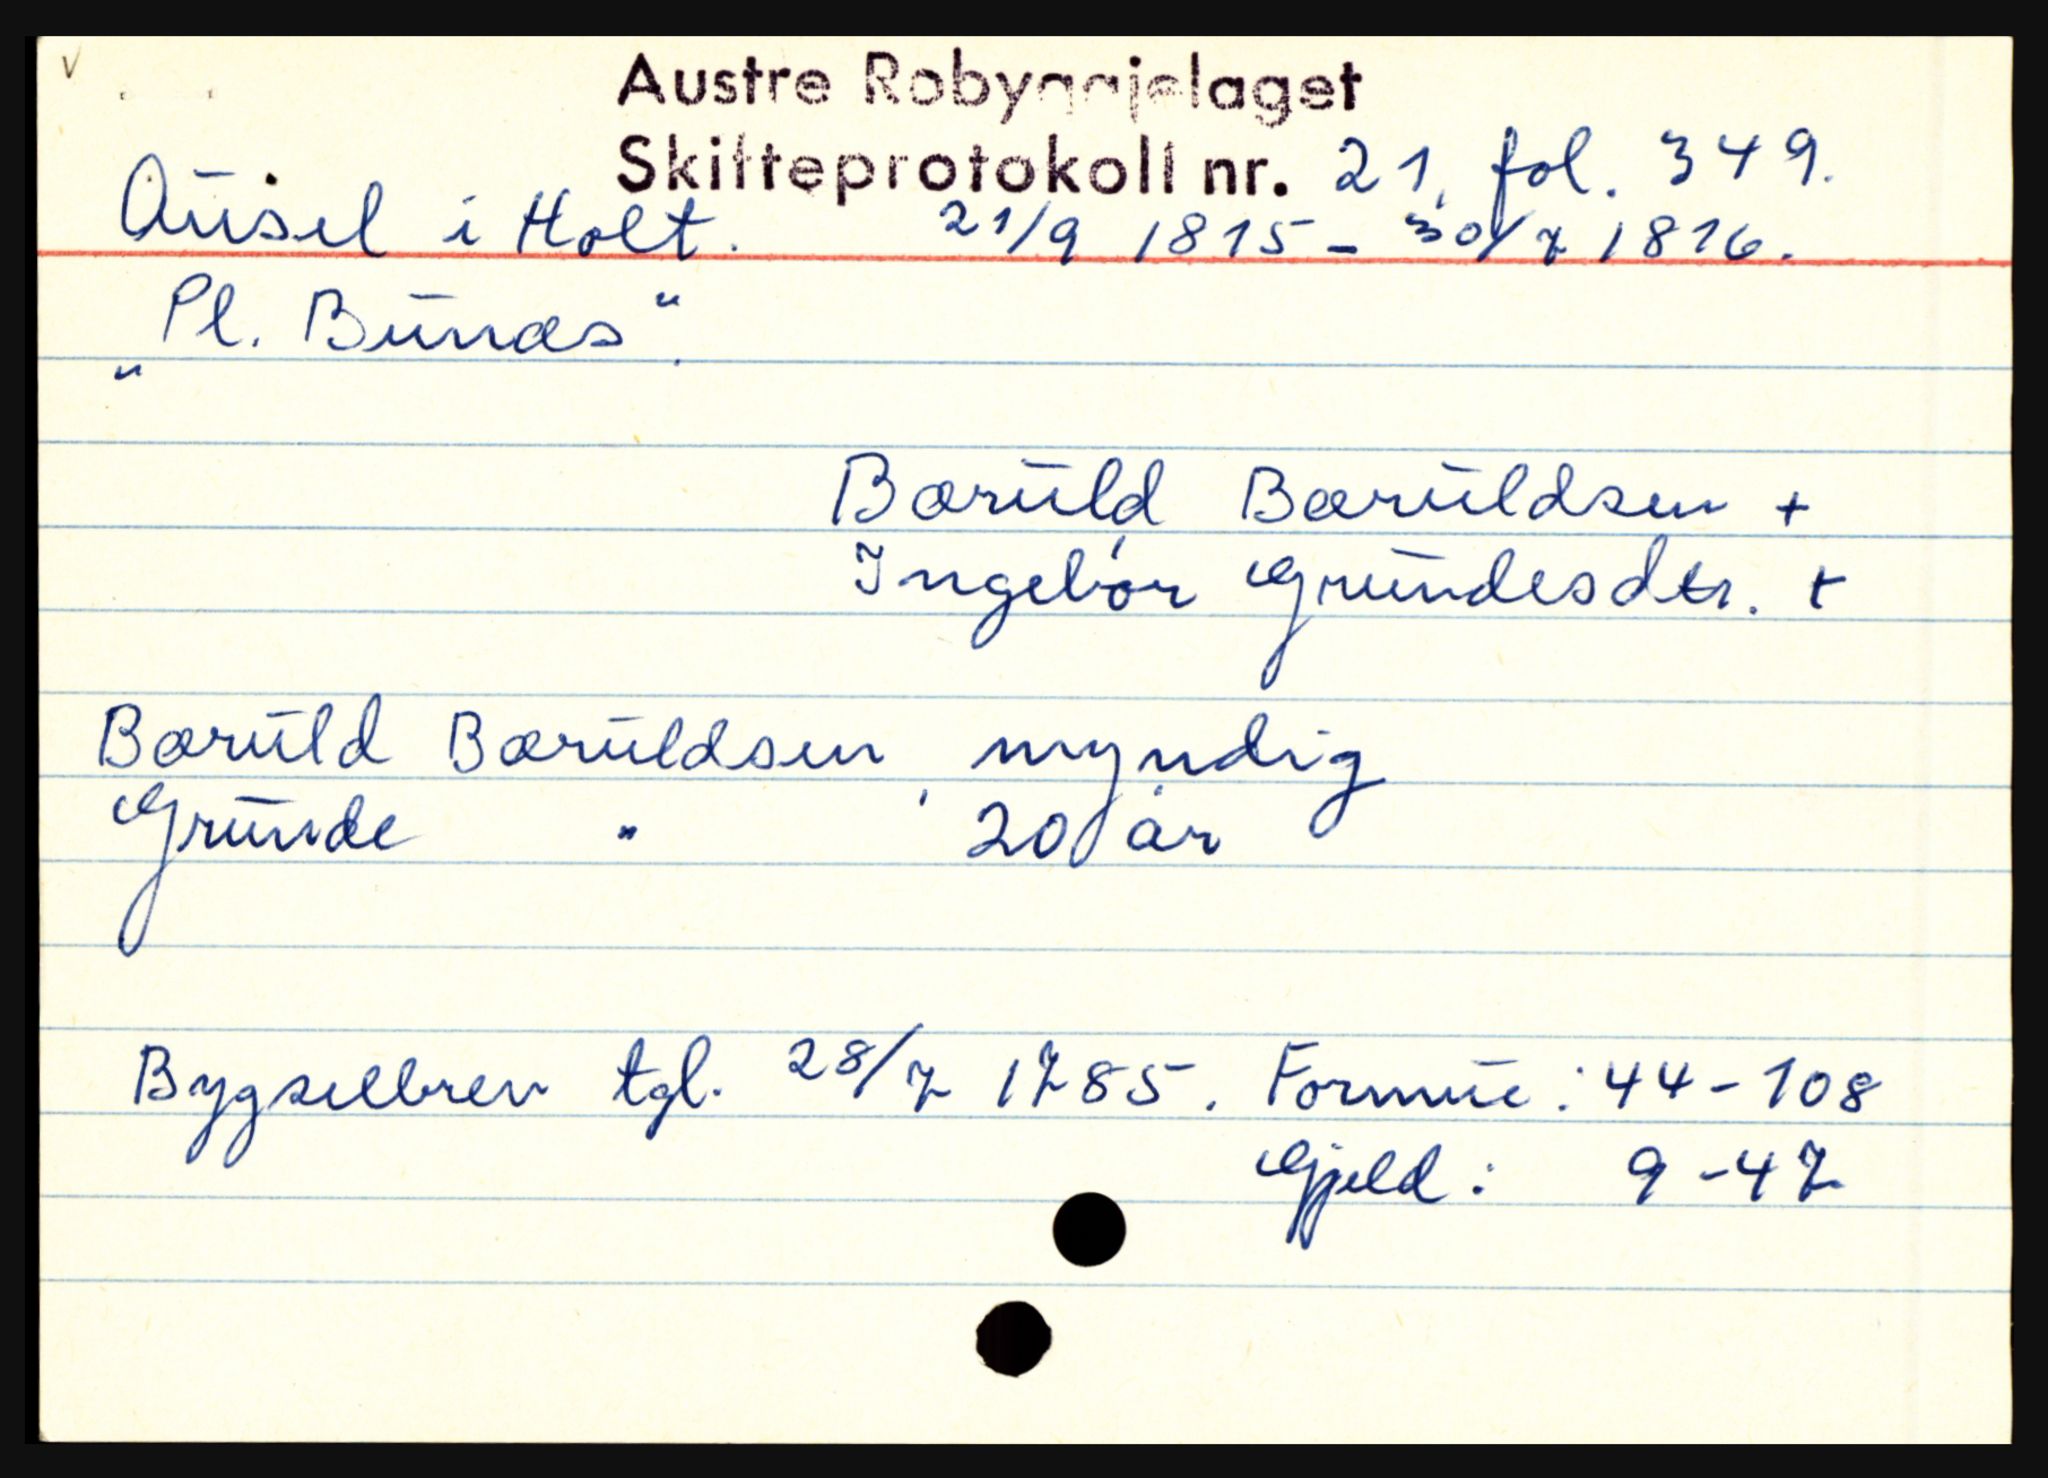 v
Austre Robyggjelaget
Skifteprotokoll nr. 21, fol. 349.
Ausel i Holt. 21/9 1815 - 30/7 1816.
"Pl. Bunæs".
Bæruld Bæruldsen +
Ingebor Grundesdtr. +
Bæruld Bæruldsen, myndig
Grunde " , 20 år
Bygselbrev tgl. 28/7 1785. Formue: 44-108
Gjeld: 9-47